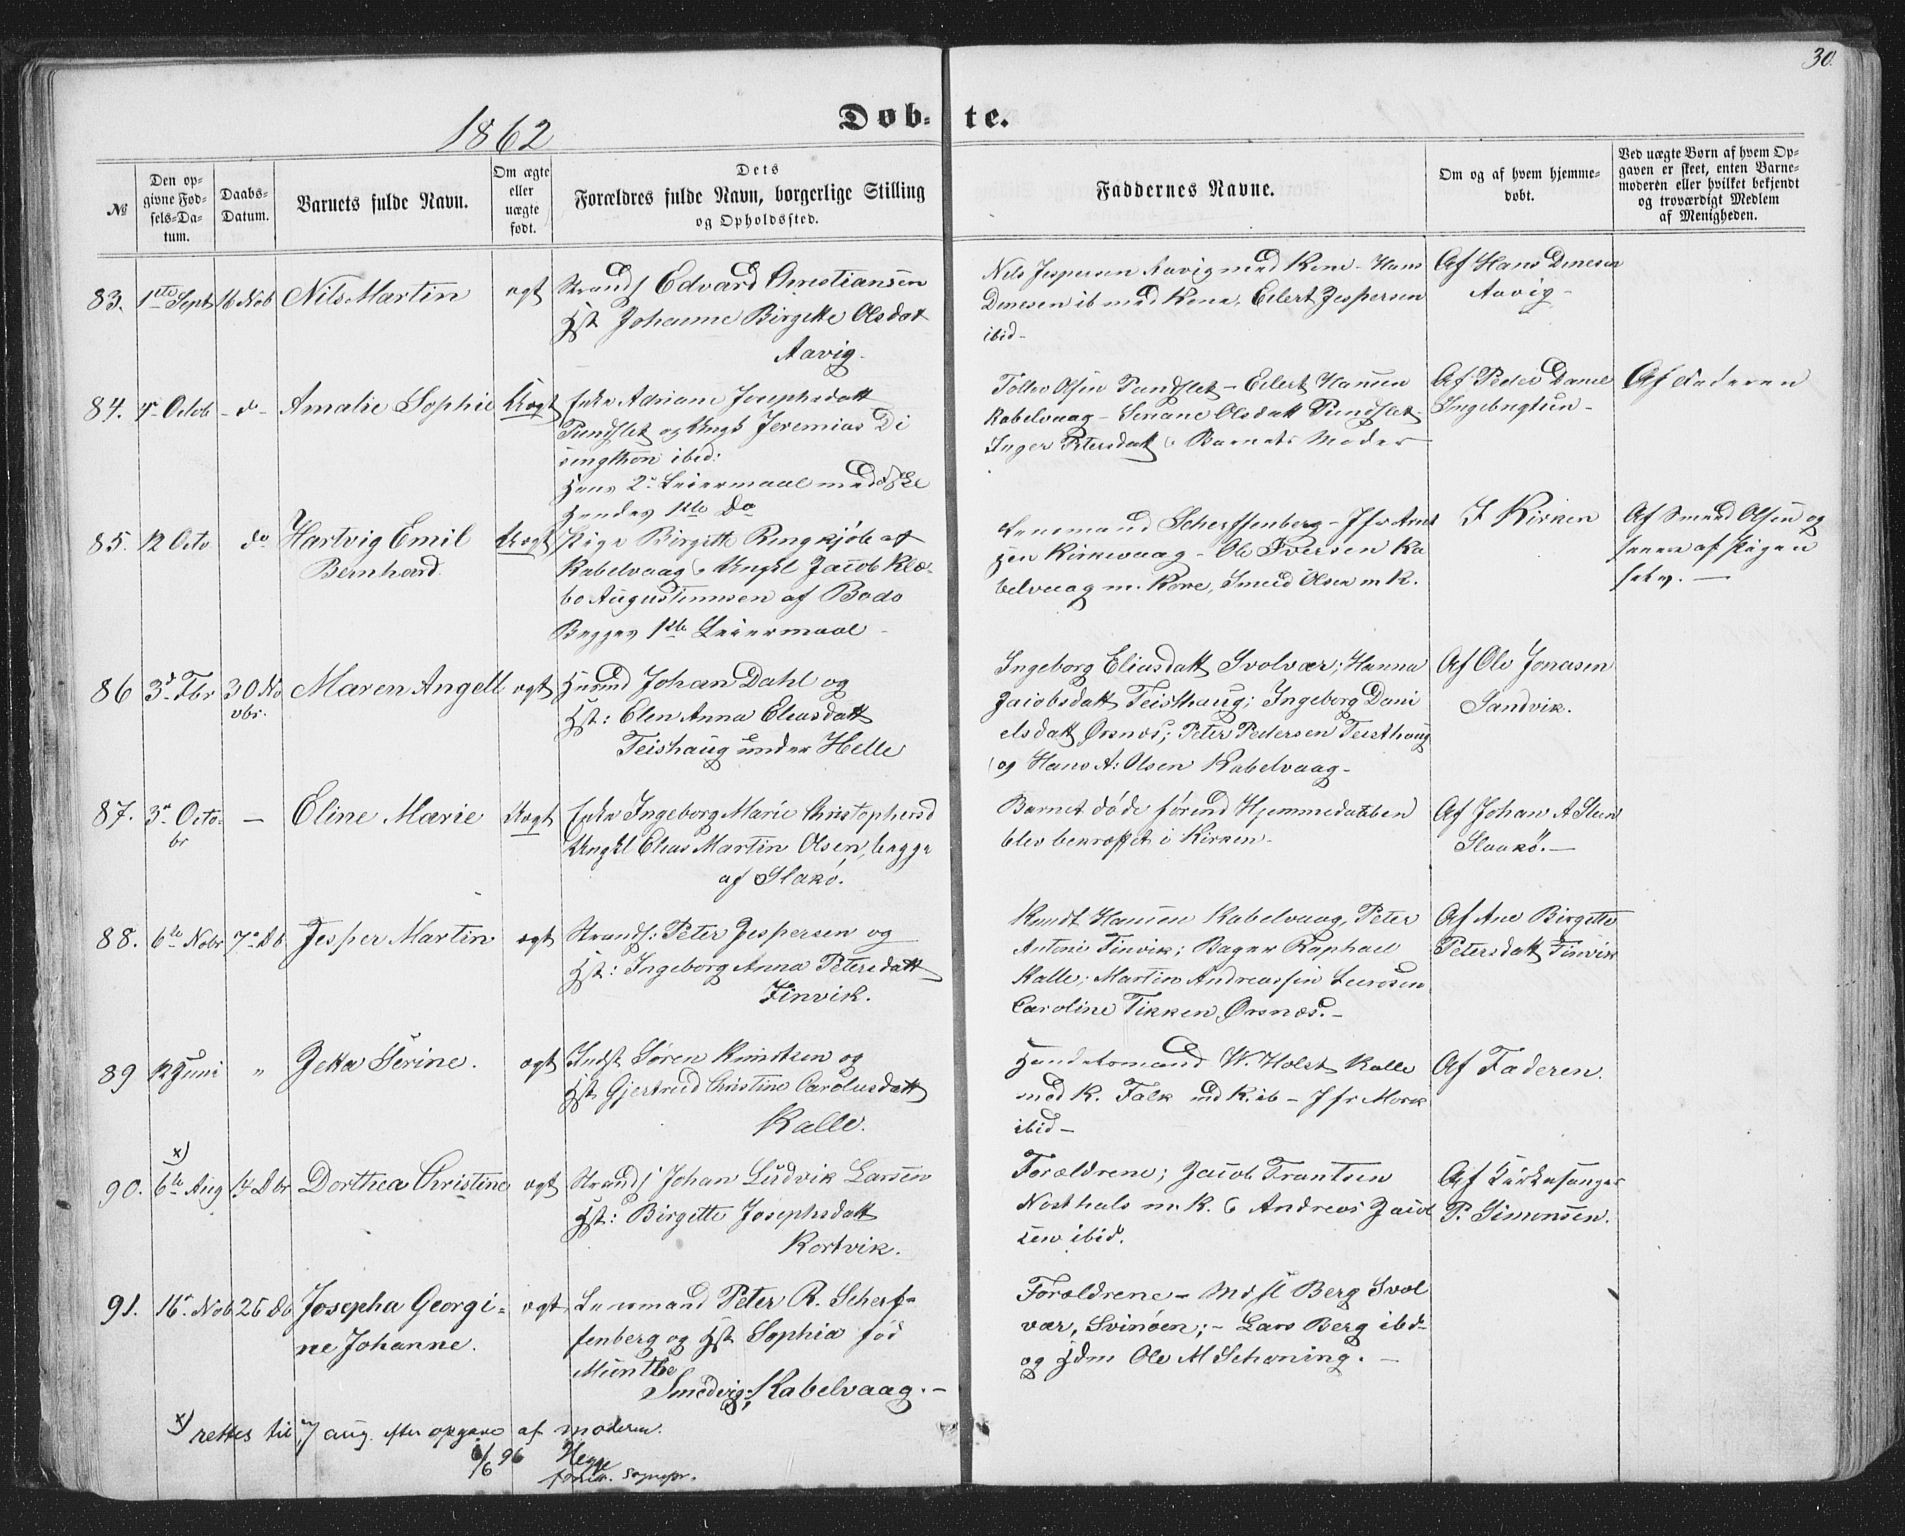 30.
1862
Døb-te.
№
Den opgivne Fødsels-Datum.
Daabs-Datum.
Barnets fulde Navn.
Om ægte eller uægte født.
Dets Forældres fulde Navn, borgerlige Stilling og Opholdssted.
Faddernes Navne.
Om og af hvem hjemmedøbt.
Ved uægte Børn af hvem Opgaven er skeet, enten Barnemoderen eller hvilket bekjendt og troværdigt Medlem af Menigheden.
83. 1ste Sept 16 Nob Nils Martin ægt
Strands Edvard Christiansen
Hst Johanne Birgitte Olsdat
Aavig.
Nils Jespersen Aavig med Kone - Hans
Dinesen ib med Kone, Eilert Jespersen
ibid-
Af Hans Dinesen
Aavig-
84. 4 Octob - do - Amalie Sophie Uægt
Enke Adriane Josephsdatt
Pundslet og Ungk Jeremias Di
ibid:
Hans 2 Leiermaal med
Hendes 1ste Do
Tollev Olsen Pundslet - Eilert Hansen
Kabelvaag - Seriane Olsdatt Pundslet
Inger Petersdatt, Barnets Moder
Af Peder Daniel
Ingebrigtsen-
Af Faderen
85. 12 Octo do Hartvig Emil
Bernhard.
Uægt
Pige Birgitte Ringkjøb af
Kabelvaag, Ungkl Jacob Klæ-
bo Augustinusen af Bodø
Begges 1ste Leiermaal -
Lensmand Scherffenberg - Jfr
Kirkevaag - Ole Iversen Ka
belvaag m. Kone, Smed Olsen m K.
I Kirken
Af Smed Olsen og
senere af Pigen
selv. -
86 3d Fbr 30 No
vbr.
Maren Angell ægt
Husmd Johan Dahl og
Hst: Elen Anna Eliasdatt
Teishaug under Helle
Ingeborg Eliasdatt Svolvær; Hanna
Jacobsdatt Teisthaug; Ingeborg Dani
elsdatt Ørsnæs; Peter Pedersen Teisthaug
og Hans A: Olsen Kabelvaag-
Af Ole Jonasen
Sandvik.
87. 3 Octo-
br
- Eline Marie Uægt
Enke Ingeborg Marie Christophersd
Ungkl Elias Martin Olsen, begge
af Skakø.
Barnet døde førend Hjemmedaaben
blev bekræftet i Kirken-
Af Johan A Steen
88. 6te Nobr 7 Db Jesper Martin ægt
Strands: Peter Jespersen og
Hst: Ingeborg Anna Petersdatt
Finvik.
Knudt Hansen Kabelvaag, Peter
Antoni Finvik; Bager Raphael
Kalle; Martin Andreassen
Caroline Tikken Ørsnæs.-
Af Ane Birgitte
Petersdatt Finvik
89 12 Juni " Jetta Serine. ægt
Indst Søren Knutsen og
Hst Gjertrud Christine Carolusdatt
Kalle.
Handelsmand W. Holst Kalle
med K. Falk md K. ib - Jfr Mork
ibid-
Af Faderen.
x)
90. 6te Aug 14 Dbr Dorthea Christine ægt
Strands Johan Ludvik Larsen
Hst: Birgitte Josephsdatt
Kortvik.
Forældrene; Jacob Frantsen
Nosthals m. K. & Andreas Jacob
sen ibid.
Af Kirkesanger
P. Simonsen.
91. 16 Nob 26 Db Josepha Georgi-
ne Johanne.
ægt
Lensmand Peter R. Scherf-
fenberg og Hst Sophia fød
Munthe
Smedvig, Kabelvaag.-
Forældrene - Berg Svol
vær, Svinøen; - Lars Berg ibd-
og Hdm Ole M Schøning. -
x) rettes til 7 aug. efter opgave af moderen.
6/6 96 Hegge
sognepr.